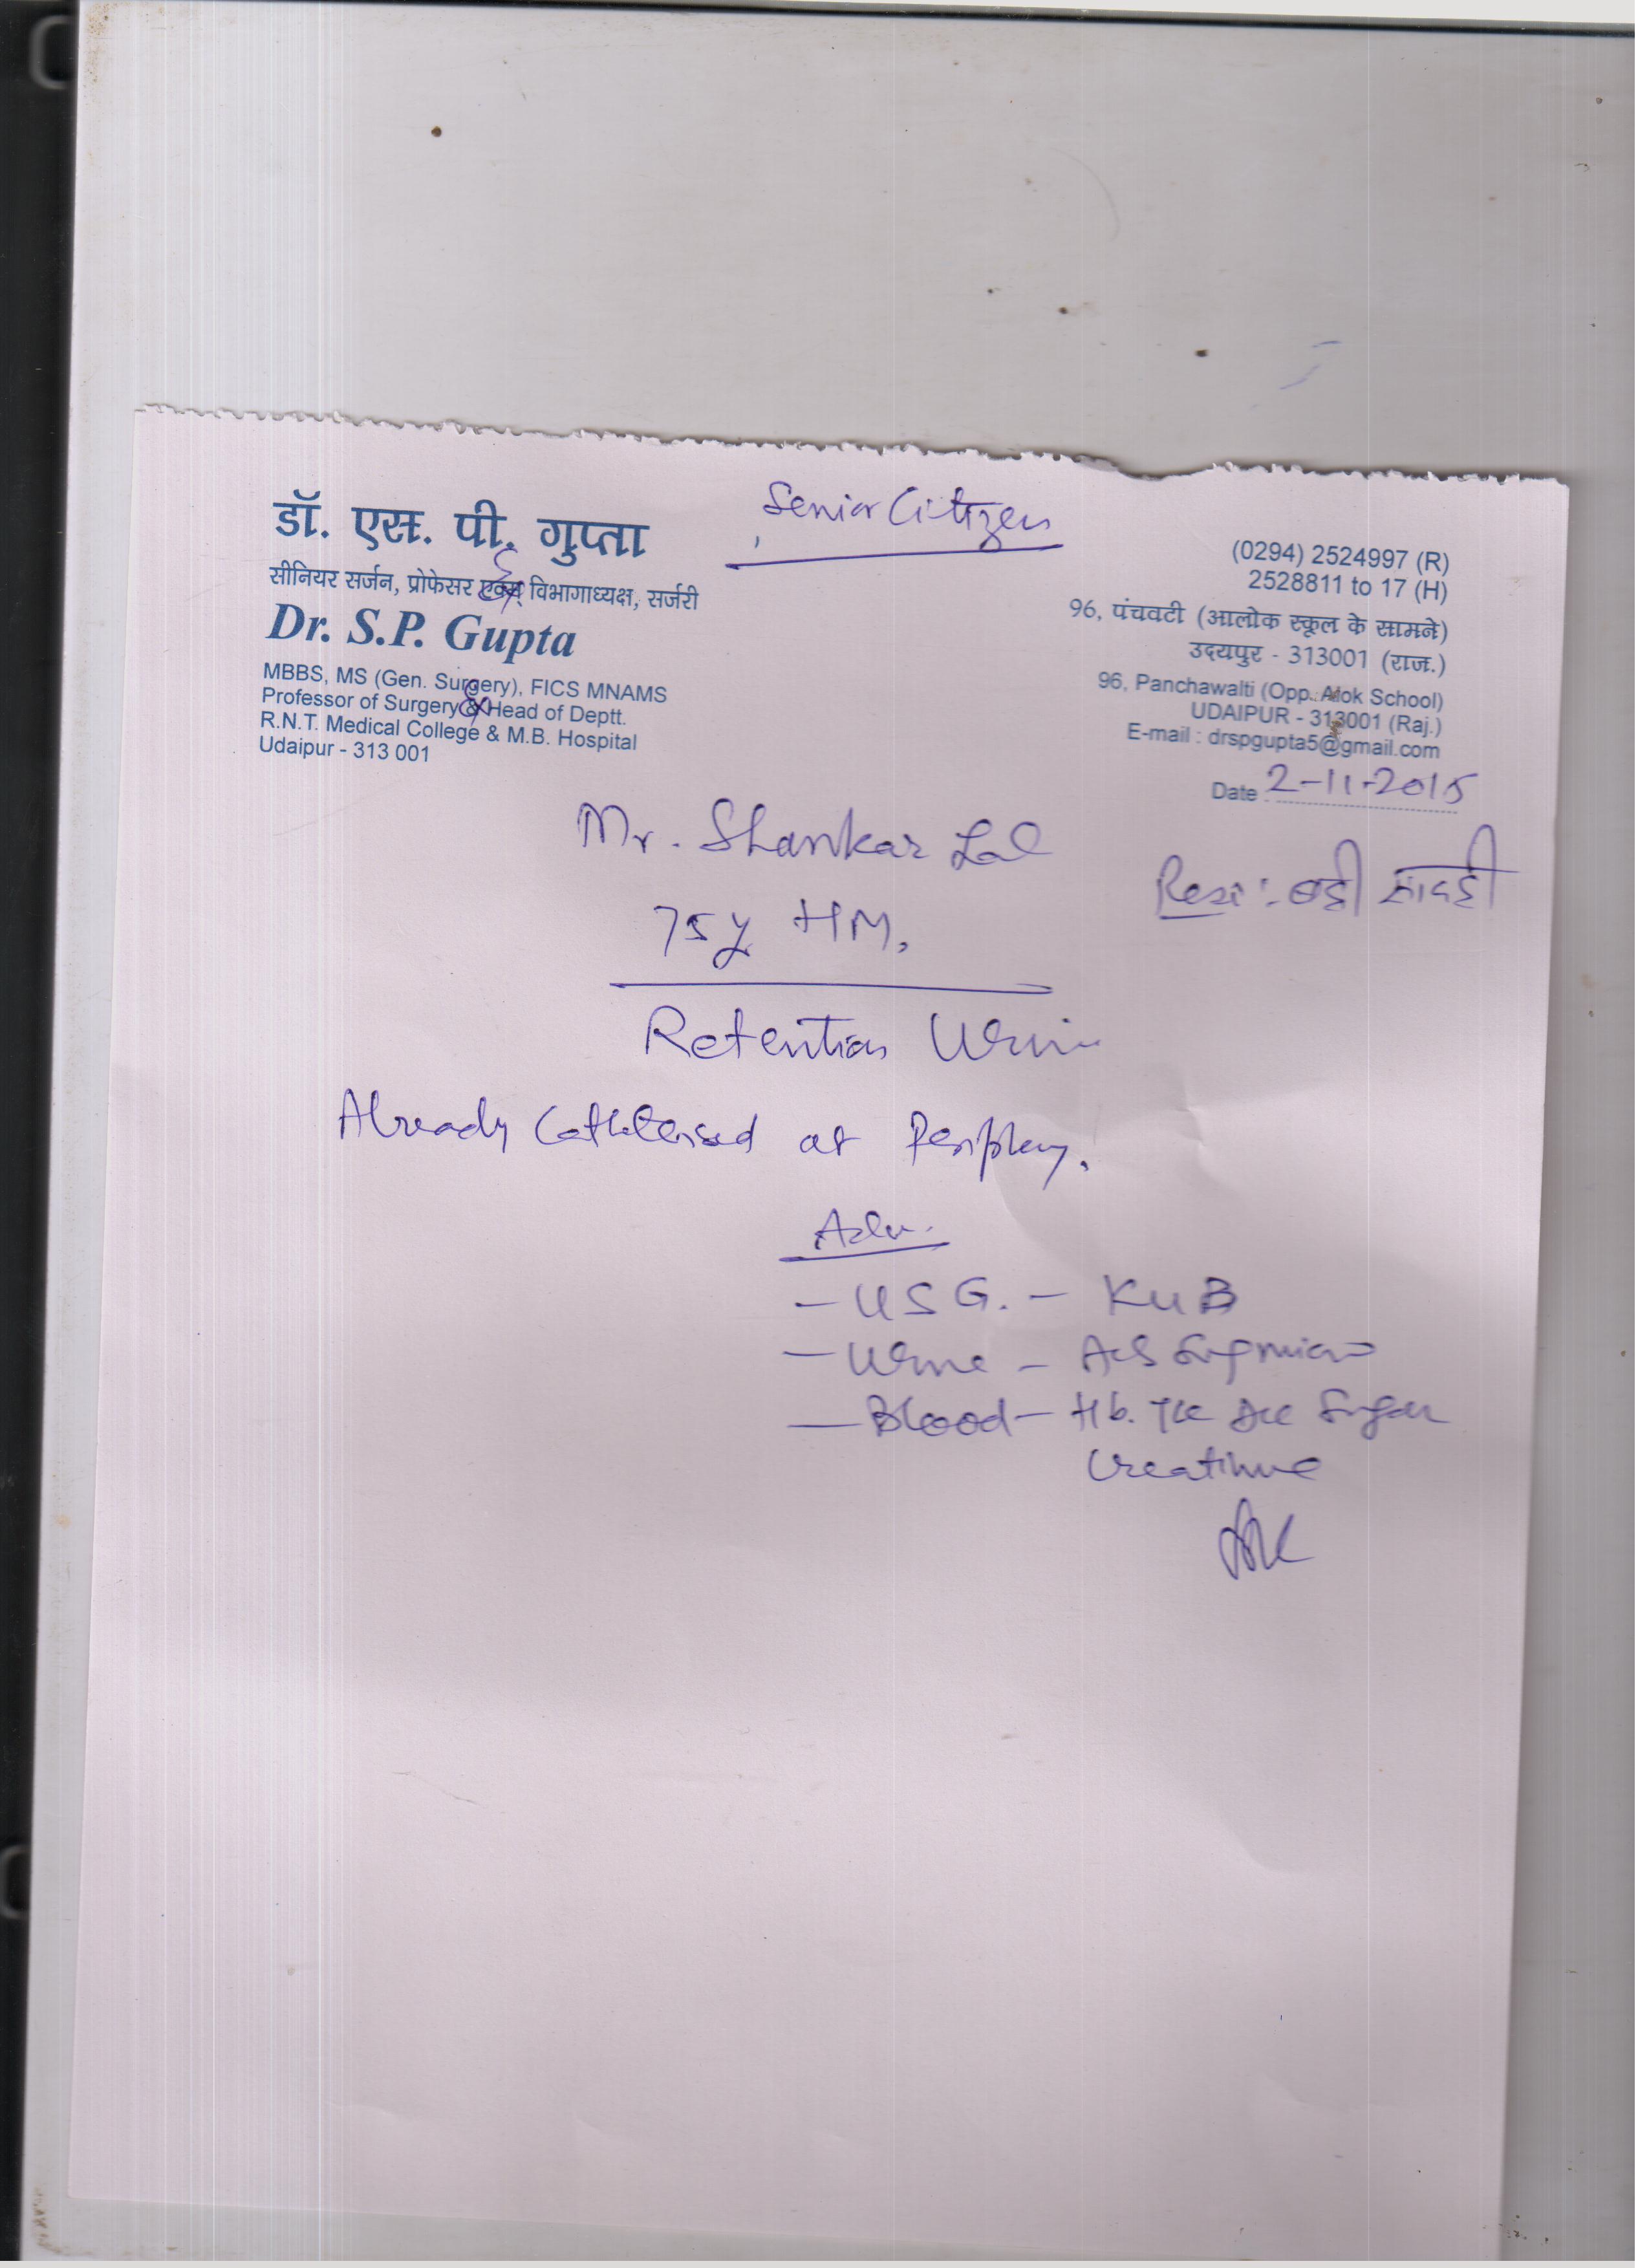 Senior Citizen
डॉ. एस. पी. गुप्ता
सीनियर सर्जन, प्रोफेसर एवम् विभागाध्यक्ष, सर्जरी
Dr. S.P. Gupta
MBBS, MS (Gen. Surgery), FICS MNAMS
Professor of Surgery & Head of Deptt.
R.N.T. Medical College & M.B. Hospital
Udaipur - 313 001
(0294) 2524997 (R)
2528811 to 17 (H)
96, पंचवटी (आलोक स्कूल के सामने)
उदयपुर - 313001 (राज.)
96, Panchawalti (Opp. Alok School)
UDAIPUR - 313001 (Raj.)
E-mail : drspgupta5@gmail.com
Date : 2-11-2015
Mr. Shankar Lal
Resi : बड़ी सादड़ी
75y HM.
Retention Urine
Already Catheterised at Periphery.
Adv.
- USG. - KUB
- Urine - Alb Sug micro
- Blood - Hb. TLC DLC Sugar
Creatinine